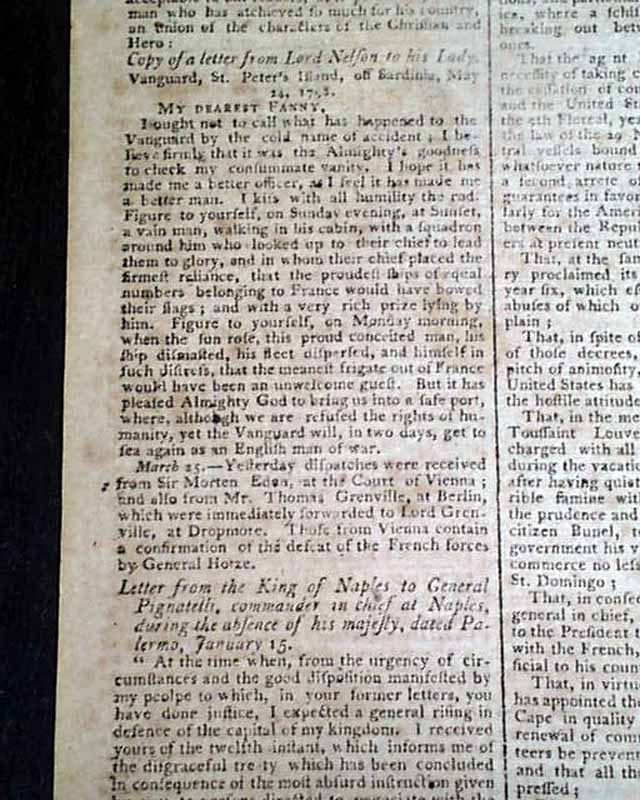 man who has atchieved so much for his country,
an union of the characters of the Christian and
Hero:
Copy of a letter from Lord Nelſon to his Lady.
Vanguard, St. Peter's Iſland, off Sardinia, May
24, 1798.
MY DEAREST FANNY,
I ought not to call what has happened to the
Vanguard by the cold name of accident; I be-
lieve firmly that it was the Almighty's goodneſs
to check my conſummate vanity. I hope it has
made me a better officer, as I feel it has made me
a better man. I kiſs with all humility the rod.
Figure to yourſelf, on Sunday evening, at Sunſet,
a vain man, walking in his cabin, with a ſquadron
around him who looked up to their chief to lead
them to glory, and in whom their chief placed the
firmeſt reliance, that the proudeſt ſhips of equal
numbers belonging to France would have bowed
their flags; and with a very rich prize lying by
him. Figure to yourſelf, on Monday morning,
when the ſun roſe, this proud conceited man, his
ſhip diſmaſted, his fleet diſperſed, and himſelf in
ſuch diſtreſs, that the meaneſt frigate out of France
would have been an unwelcome gueſt. But it has
pleaſed Almighty God to bring us into a ſafe port,
where, although we are refuſed the rights of hu-
manity, yet the Vanguard will, in two days, get to
ſea again as an Engliſh man of war.
March 25.—Yeſterday diſpatches were received
from Sir Morten Eden, at the Court of Vienna;
and alſo from Mr. Thomas Grenville, at Berlin,
which were immediately forwarded to Lord Gren-
ville, at Dropmore. Thoſe from Vienna contain
a confirmation of the defeat of the French forces
by General Hotze.
Letter from the King of Naples to General
Pignatelli, commander in chief at Naples,
during the abſence of his majeſty, dated Pa-
lermo, January 15.
“ At the time when, from the urgency of cir-
cumſtances and the good diſpoſition manifeſted by
my peolpe to which, in your former letters, you
have done juſtice, I expected a general riſing in
defence of the capital of my kingdom. I received
yours of the twelfth inſtant, which informs me of
the diſgraceful treaty which has been concluded
in conſequence of the moſt abſurd inſtruction given
ice, where a
breaking out
ours.
That the
neceſſity of taking
and the United
tral veſſels bound
whatſoever nature
a ſecond arrete
guarantees in favo
larly for the Amer
between the Repu
ers at preſent neut
That, at the ſam
ry proclaimed its
year ſix, which
abuſes of which
plain;
That, in ſpite of
of thoſe decrees,
pitch of animoſity,
United States has
the hoſtile attitude
That, in the me
Touſſaint Louve
charged with all
during the vacati
after having quiet
rible famine wit
the prudence and
citizen Bunel, t
government his
commerce no leſs
St. Domingo;
That, in conſec
general in chief,
to the Preſident
with the French,
ficial to his coun
That, in virtu
has appointed th
Cape in quality
renewal of com
teers be preven
and that all th
preſſed;